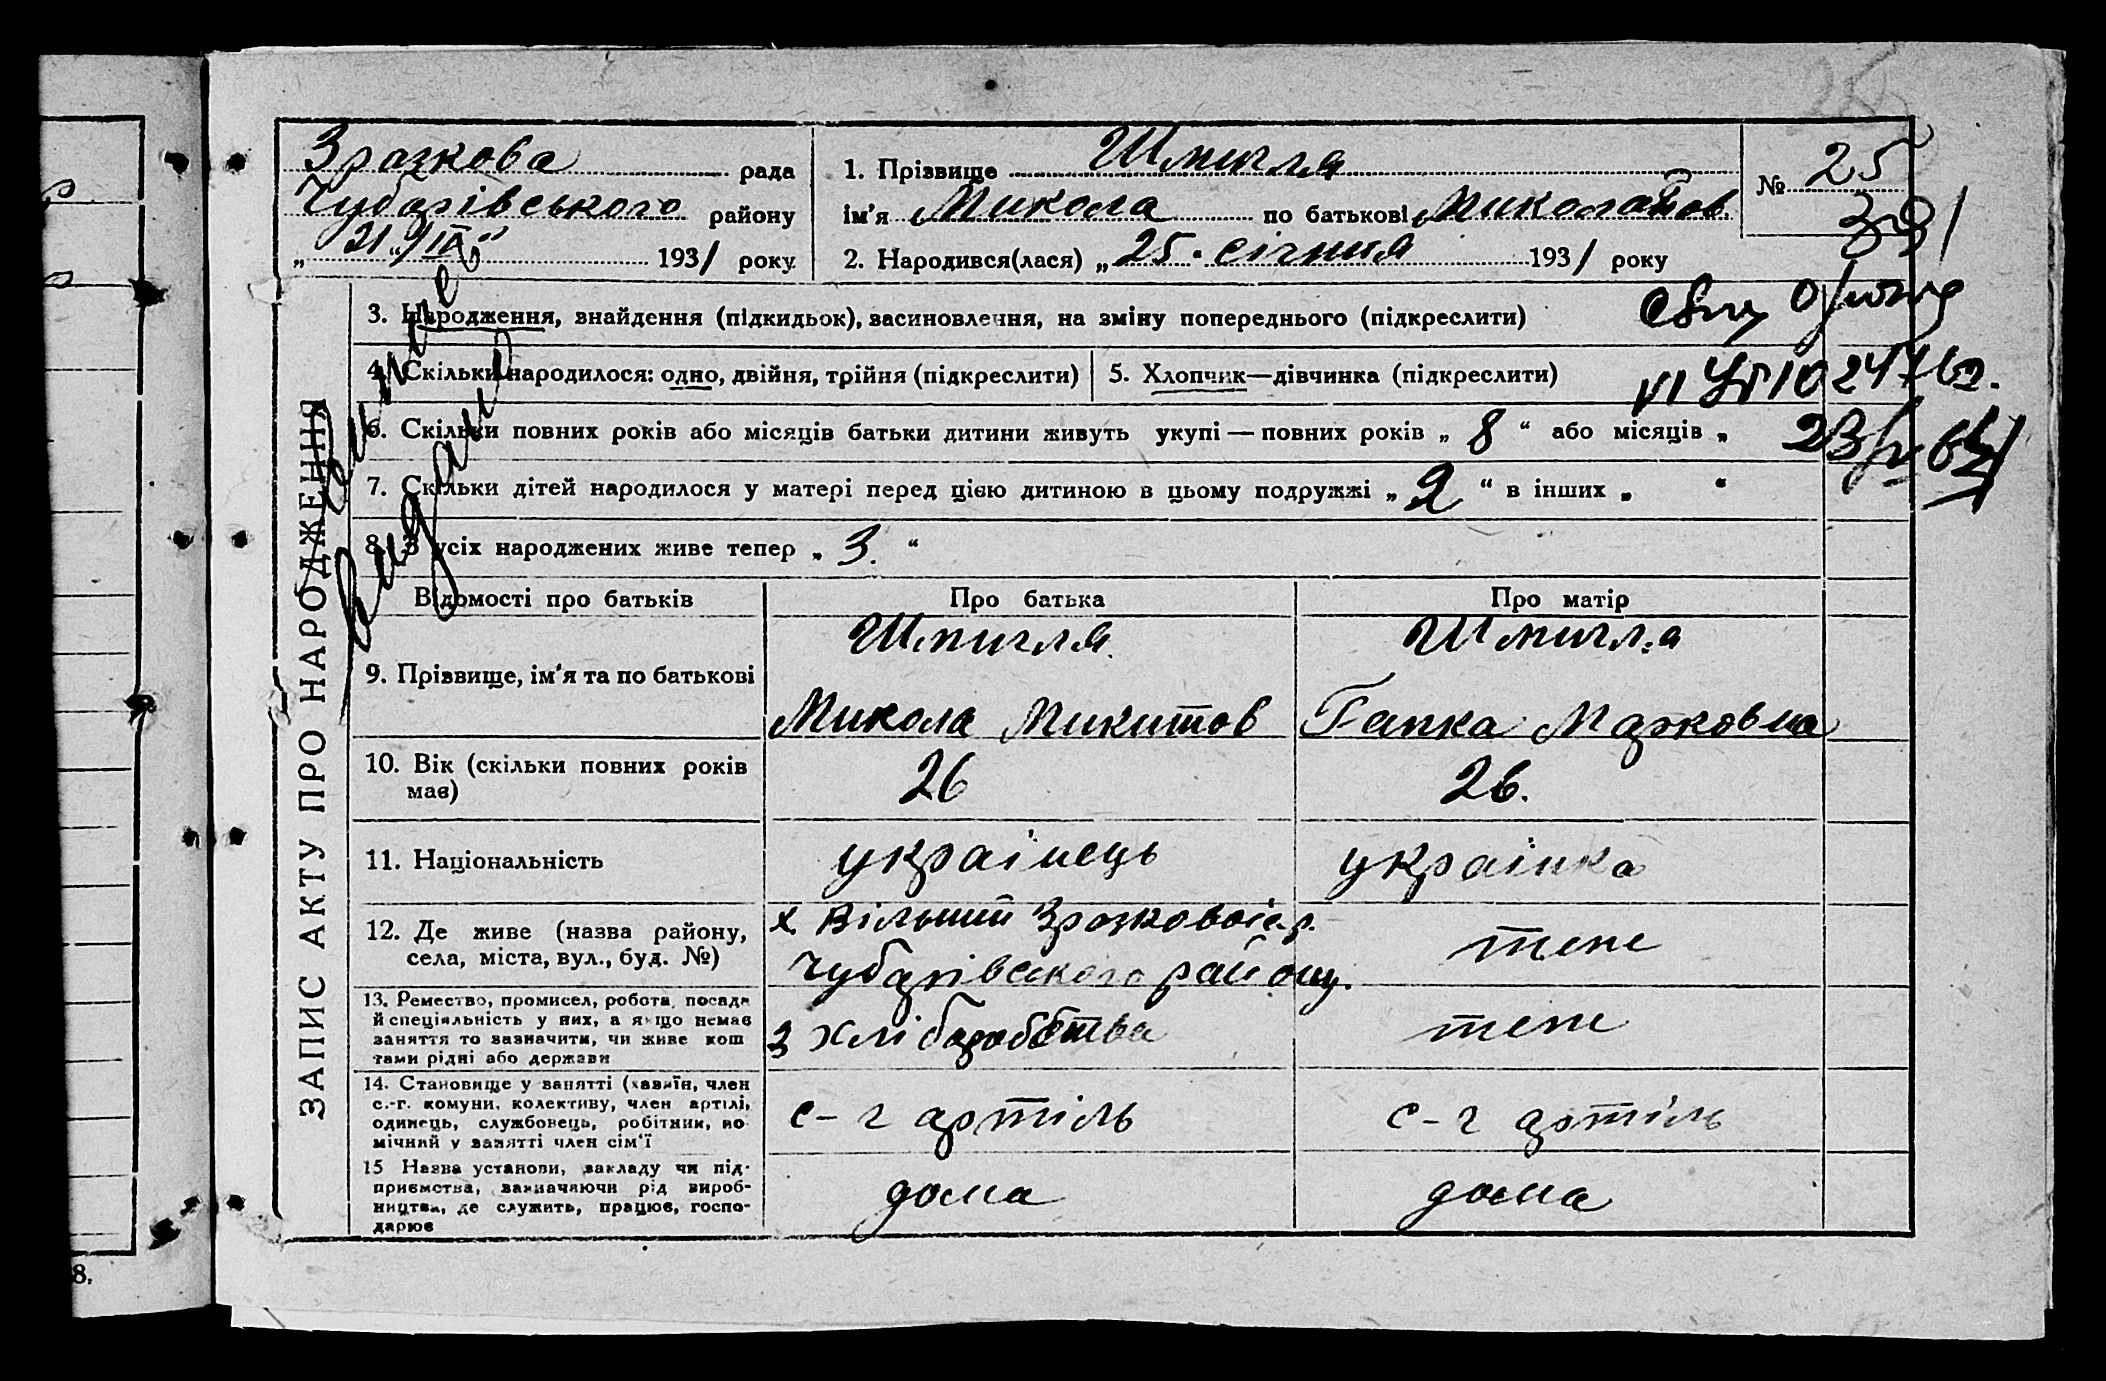 Зразкова рада
Чубарівського району
„ 21 „ / ІІІ “ 1931 року
1. Прізвище Шпигля
ім’я Микола по батькові Миколайов
2. Народився(лася) „ 25 “ січния 1931 року
№ 25
ЗАПИС АКТУ ПРО НАРОДЖЕННЯ
3. Народження, знайдення (підкидьок), засиновлення, на зміну попереднього (підкреслити)
4. Скільки народилося: одно, двійня, трійня (підкреслити)
5. Хлопчик—дівчинка (підкреслити)
6. Скільки повних років або місяців батьки дитини живуть укупі — повних років „ 8 “ або місяців „
7. Скільки дітей народилося у матері перед цією дитиною в цьому подружжі „ 2 “ в інших „ “
8. З усіх народжених живе тепер „ 3. “
Відомості про батьків
Про батька
Про матір
9. Прізвище, ім’я та по батькові
Шпигля
Микола Микитов
Шпигля
Гапка Марковна
10. Вік (скільки повних років має)
26
26.
11. Національність
українець
українка
12. Де живе (назва району, села, міста, вул., буд. №)
х. Вільний Зразковоі с.р.
Чубарівського району.
теж
13. Ремество, промисел, робота, посада й спеціяльність у них, а якщо немає заняття то зазначити, чи живе коштами рідні або держави
З хліборобства
теж
14. Становище у занятті (хазяїн, член с.-г. комуни, колективу, член артілі, одинець, службовець, робітник, помічний у занятті член сім’ї
с-г артіль
с-г артіль
15 Назва установи, закладу чи підприємства, зазначаючи рід виробництва, де служить, працює, господарює
дома
дома
8.